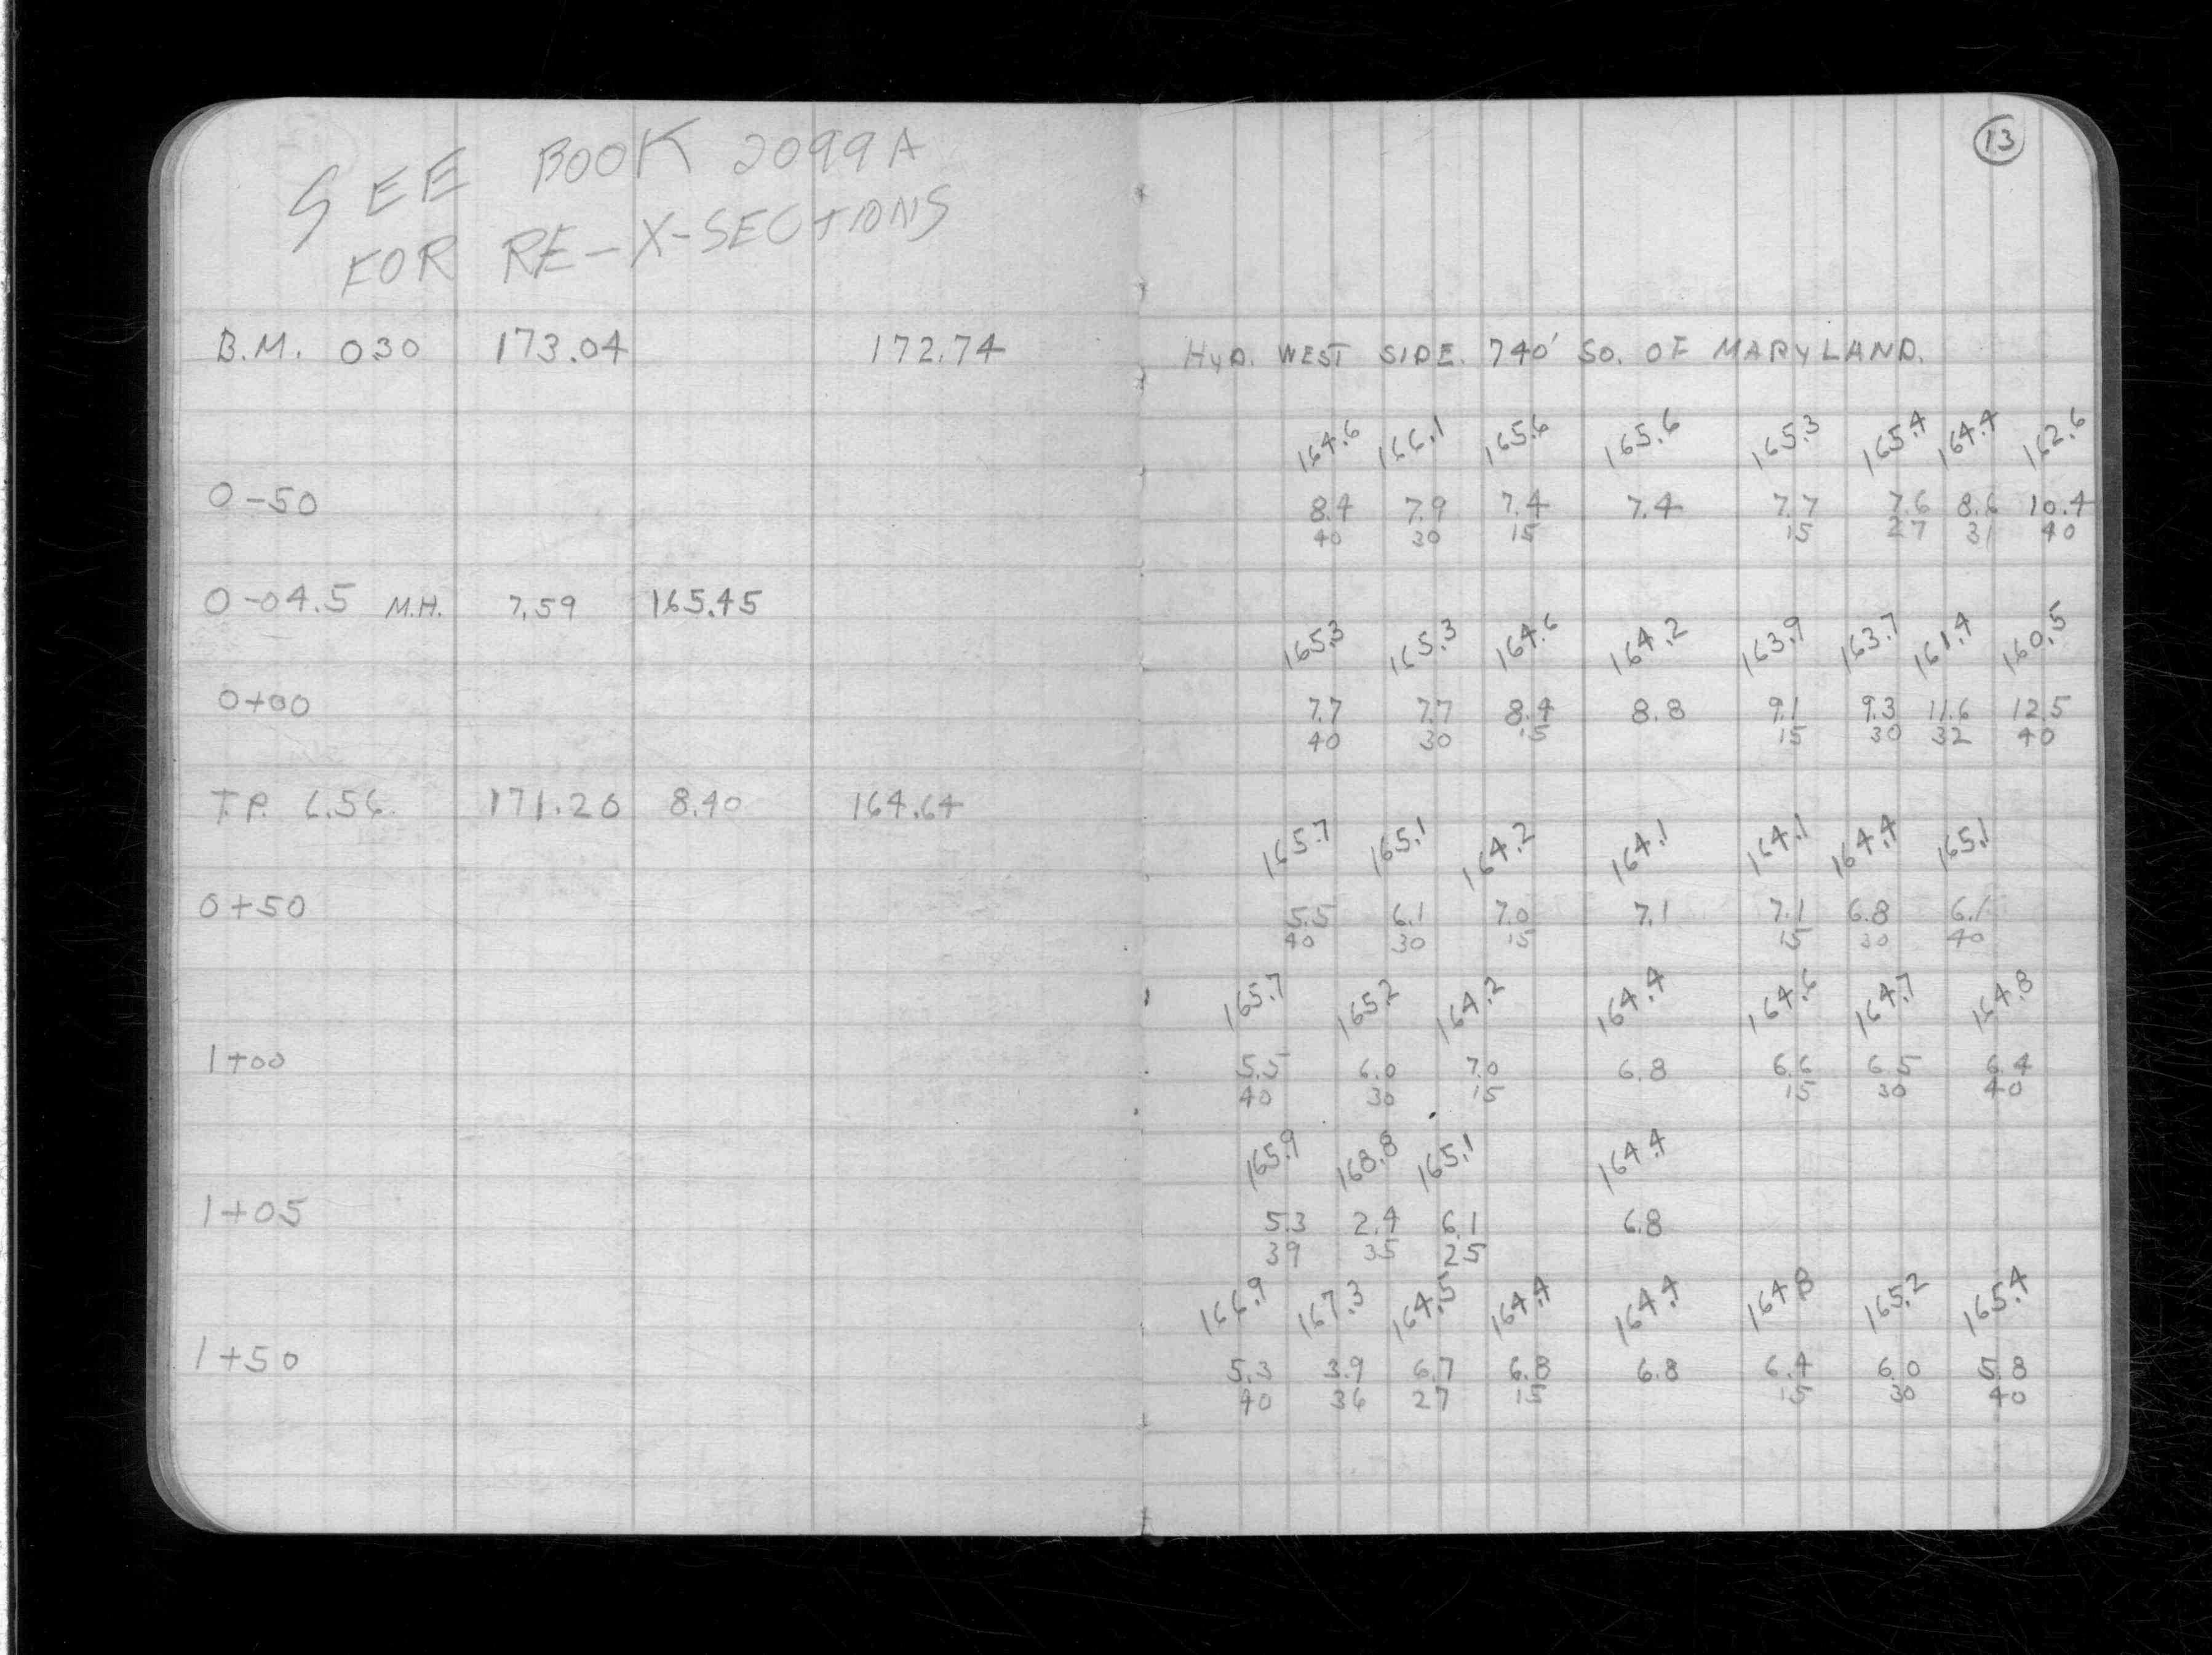 13
SEE BOOK 2099A
FOR RE-X-SECTIONS
B.M. 030 173.04 172.74 HYD. WEST SIDE. 740' SO. OF MARYLAND.
164.6 166.1 165.6 165.6 165.3 165.4 164.4 162.6
0-50 8.4 7.9 7.4 7.4 7.7 7.6 8.6 10.4
40 30 15 15 27 31 40
0-04.5 M.H. 7.59 165.45
165.3 165.3 164.6 164.2 163.9 163.7 161.4 160.5
0+00 7.7 7.7 8.4 8.8 9.1 9.3 11.6 12.5
40 30 15 15 30 32 40
T.P. 6.56 171.20 8.40 164.64
165.7 165.1 164.2 164.1 164.1 164.4 165.1
0+50 5.5 6.1 7.0 7.1 7.1 6.8 6.1
40 30 15 15 30 40
165.7 165.2 164.2 164.4 164.6 164.7 164.8
1+00 5.5 6.0 7.0 6.8 6.6 6.5 6.4
40 30 15 15 30 40
165.9 168.8 165.1 164.4
1+05 5.3 2.4 6.1 6.8
39 35 25
166.9 167.3 164.5 164.4 164.4 164.8 165.2 165.4
1+50 5.3 3.9 6.7 6.8 6.8 6.4 6.0 5.8
40 36 27 15 15 30 40